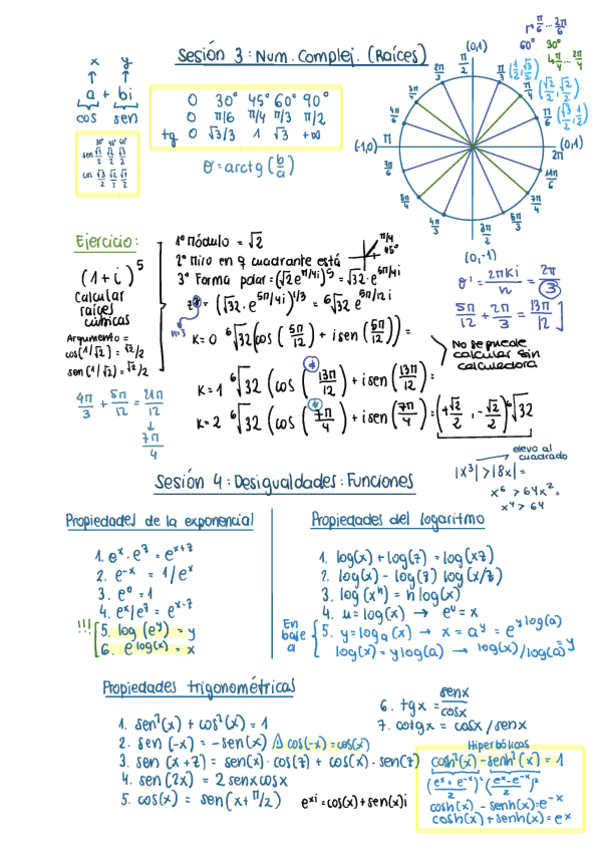 Sesión 3: Num. Complej. (Raíces)
x y
a + bi
cos sen
0 30° 45° 60° 90°
0 π/6 π/4 π/3 π/2
tg 0 √3/3 1 √3 +∞
30° 45° 60°
sen 1/2 √2/2 √3/2
cos √3/2 √2/2 1/2
θ = arctg (b/a)
60° 30°
(0,1)
π/2
2π/3 π/3 (1/2, √3/2)
3π/4 π/4 (√2/2, √2/2)
5π/6 π/6 (√3/2, 1/2)
(-1,0) π (0,1)
2π
11π/6
5π/4 7π/4
4π/3 3π/2 5π/3
(0,-1)
Ejercicio:
(1+i)^5
Calcular
raíces
cúbicas
Argumento =
cos(1/√2) = √2/2
sen(1/√2) = √2/2
4π/3 + 5π/12 = 21π/12
↓
7π/4
1º módulo = √2
2º Miro en q cuadrante está π/4 45°
3º Forma polar = (√2 e^π/4i)^5 = √32 · e^5π/4i
= (√32 · e^5π/4i)^1/3 = ⁶√32 e^5π/12 i
n=3
K=0 ⁶√32 (cos (5π/12) + i sen (5π/12)) =
No se puede
calcular sin
calculadora
K=1 ⁶√32 (cos (13π/12) + i sen (13π/12) =
K=2 ⁶√32 (cos (7π/4) + i sen (7π/4) = (+√2/2, -√2/2) ⁶√32
θ' = 2πKi/n = 2π/3
5π/12 + 2π/3 = 13π/12]
elevo al
cuadrado
|x³| > |8x| =
x⁶ > 64x² =
x⁴ > 64
Sesión 4: Desigualdades: Funciones
Propiedades de la exponencial
1. e^x · e^z = e^x+z
2. e^-x = 1/e^x
3. e^0 = 1
4. e^x/e^z = e^x-z
!!! 5. log (e^y) = y
6. e^log(x) = x
Propiedades del logaritmo
1. log(x) + log(z) = log(xz)
2. log(x) - log(z) log(x/z)
3. log(x^n) = n log(x)
4. u = log(x) → e^u = x
En
base
a
5. y = log_a (x) → x = a^y = e^y log(a)
log(x) = y log(a) → log(x)/log(a) = y
Propiedades trigonométricas
1. sen²(x) + cos²(x) = 1
2. sen (-x) = -sen(x) /⚠ cos(-x) = cos(x)
3. sen (x+z) = sen(x) · cos(z) + cos(x) · sen(z)
4. sen (2x) = 2 senx cosx
5. cos(x) = sen(x + π/2) e^xi = cos(x) + sen(x)i
6. tgx = senx/cosx
7. cotgx = cosx / senx
Hiperbólicas
cosh²(x) - senh²(x) = 1
(e^x + e^-x / 2)² (e^x - e^-x / 2)²
cosh(x) - senh(x) = e^-x
cosh(x) + senh(x) = e^x